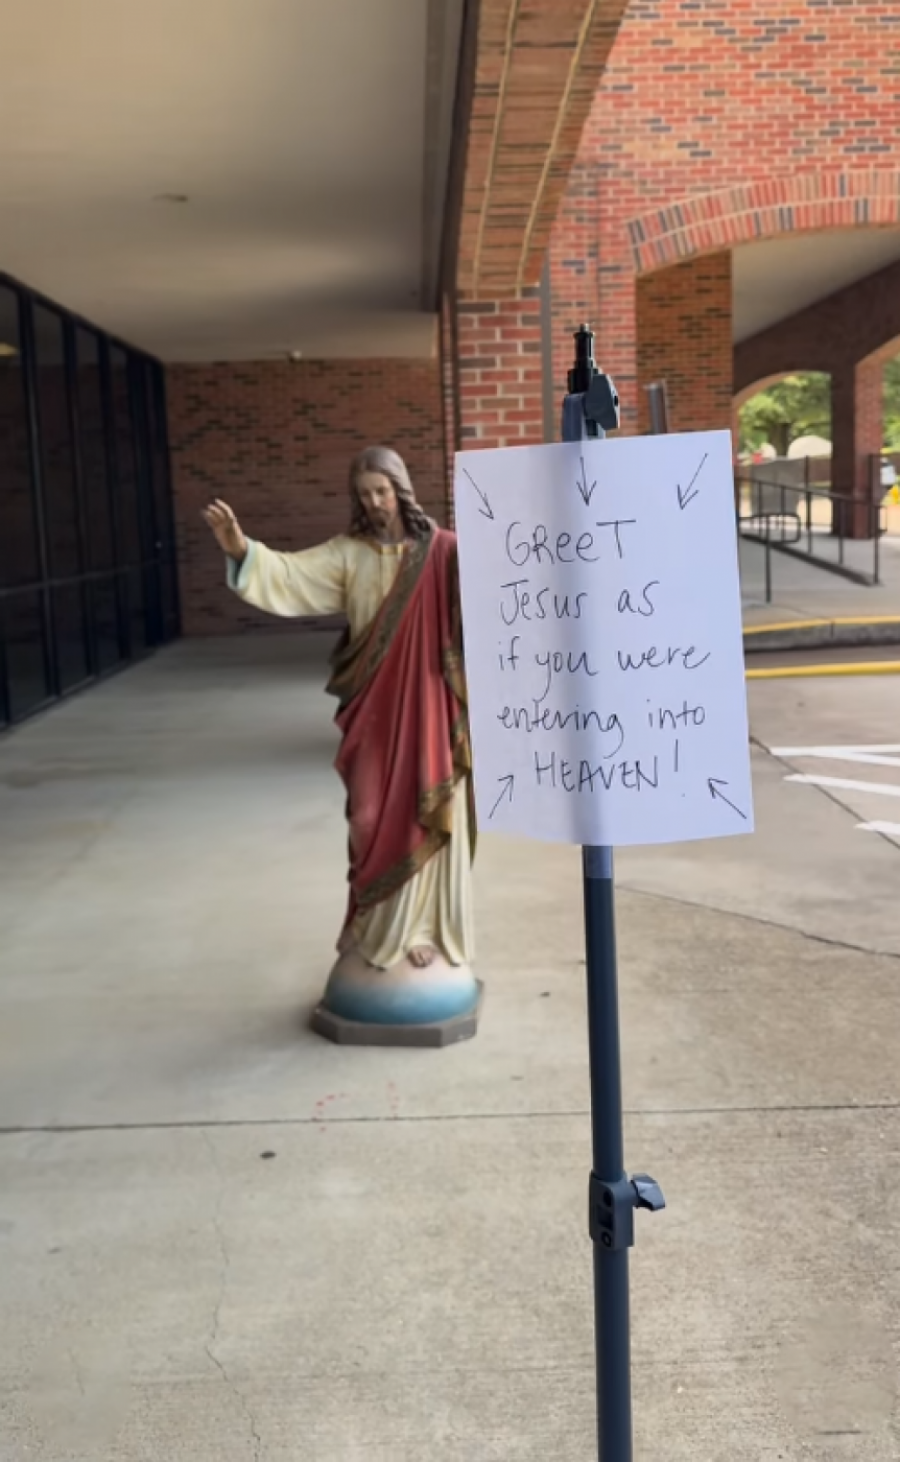 GREET
Jesus as
if you were
entering into
HEAVEN!